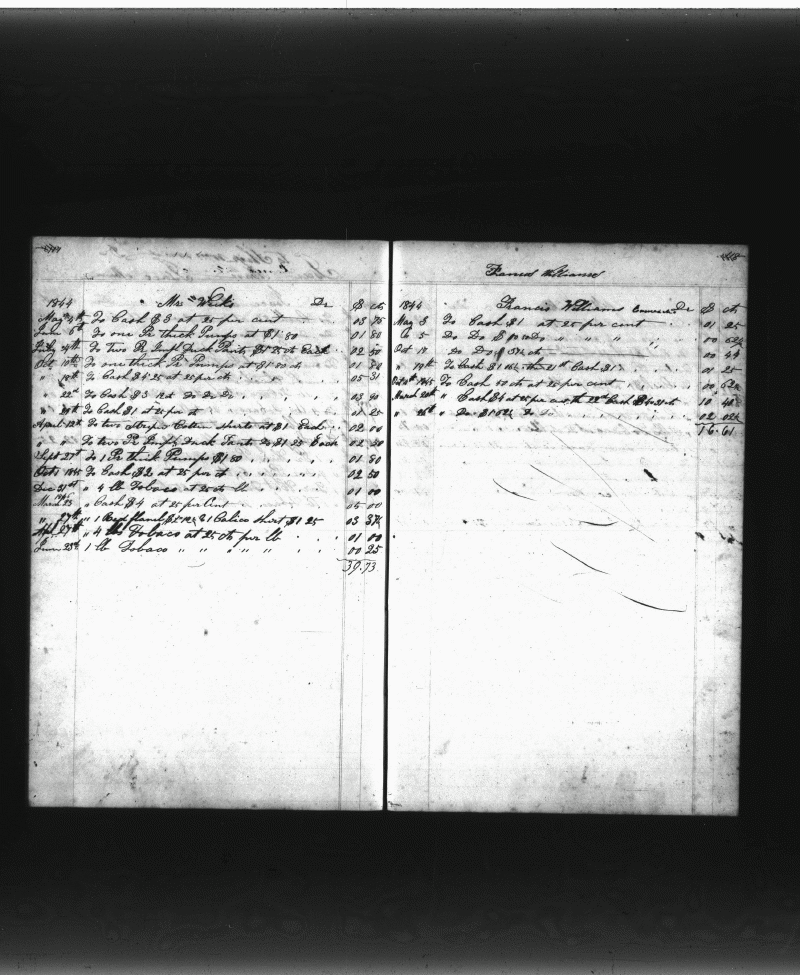 1844 Mrs Weeks Dr $ cts
May 4th To Cash $3 at 25 per cent 03 75
June 6th To one Pr thick Pumps at $1.80 01 80
To two Pr Duck Pants $1.25 cts Each 02 50
Oct 10th To one thick Pr Pumps at $1.80 cts 01 80
" 18th To Cash $4.25 at 25 per ct 05 31
" 22d To Cash $3 Do Do Do 03
" 29th To Cash $1 at 25 per ct 01 25
April 12th To two Stripe Cotton shirts at $1 Each 02 00
" " To two Pr Duck at $1.25 Each 02 50
Sept 27th To 1 Pr thick Pumps $1.80 01 80
Oct 1845 To Cash $2 at 25 per ct 02 50
Dec 31st " 4 lb Tobaco at 25 cts lb 01 00
March 23 " Cash $4 at 25 per Cent 05 00
" 27th " 1 Red flanel & 1 Calico Shirt $1 25 03 37½
Apl 27th " 4 lbs Tobaco at 25 cts per lb 01 00
June 23d 1 lb Tobaco " " " " " 00 25
39.73
Francis Williams
1844 Francis Williams Dr $ cts
May 3 To Cash $1 at 25 per cent 01 25
Do 5 Do Do Do " " " " 00 62½
Oct 18 Do Do 00 44
" 19th To Cash $1 01 25
Oct 1845 To Cash 50 cts at 25 per cent 00 62½
March " Cash $4 at 25 per cent Cash 10 40
" 26th " Do Do 02 02½
16.61